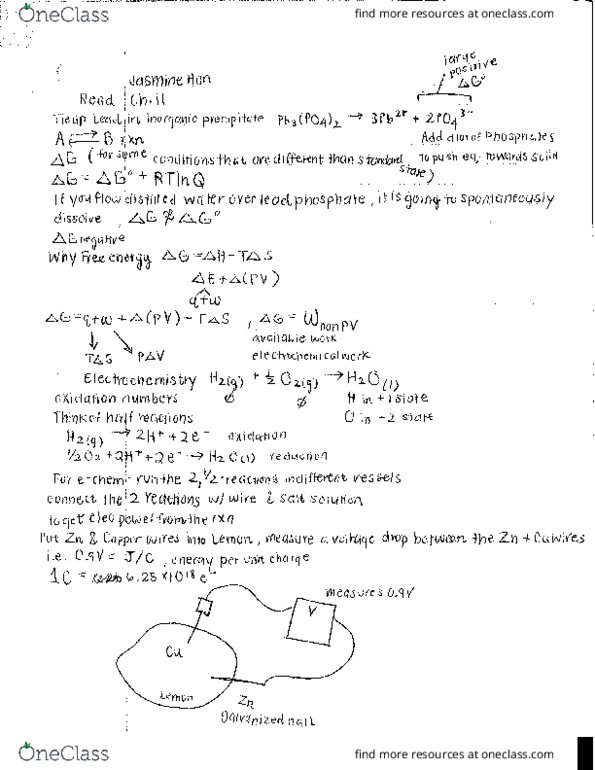 OneClass
find more resources at oneclass.com
large
positive
ΔG°
Jasmine
Read Ch. 11
Tie up lead in inorganic precipitate Pb₃(PO₄)₂ → 3Pb²⁺ + 2PO₄³⁻
A ⇌ B rxn
Add a lot of phosphates
to push eq. towards solid
ΔG (for some conditions that are different than standard state)
ΔG = ΔG° + RTlnQ
If you flow distilled water over lead phosphate, it is going to spontaneously
dissolve, ΔG ≠ ΔG°
ΔG negative
Why Free energy ΔG = ΔH - TΔS
ΔE + Δ(PV)
q+w
ΔG = q+w + Δ(PV) - TΔS, ΔG = W non PV
available work
electrochemical work
TΔS PΔV
Electrochemistry H₂(g) + ½O₂(g) → H₂O(l)
oxidation numbers ∅ ∅ H in +1 state
O in -2 state
Think of half reactions
H₂(g) → 2H⁺ + 2e⁻ oxidation
½O₂ + 2H⁺ + 2e⁻ → H₂O(l) reduction
For e-chem run the 2, ½-reactions in different vessels
connect the 2 reactions w/ wire & salt solution
to get elec power from the rxn
Put Zn & Copper wires into Lemon, measure a voltage drop between the Zn + Cu wires
i.e. 0.9V = J/C, energy per unit charge
1C = 6.25 × 10¹⁸ e⁻
measures 0.9V
V
Cu
Lemon
Zn
galvanized nail
OneClass
find more resources at oneclass.com